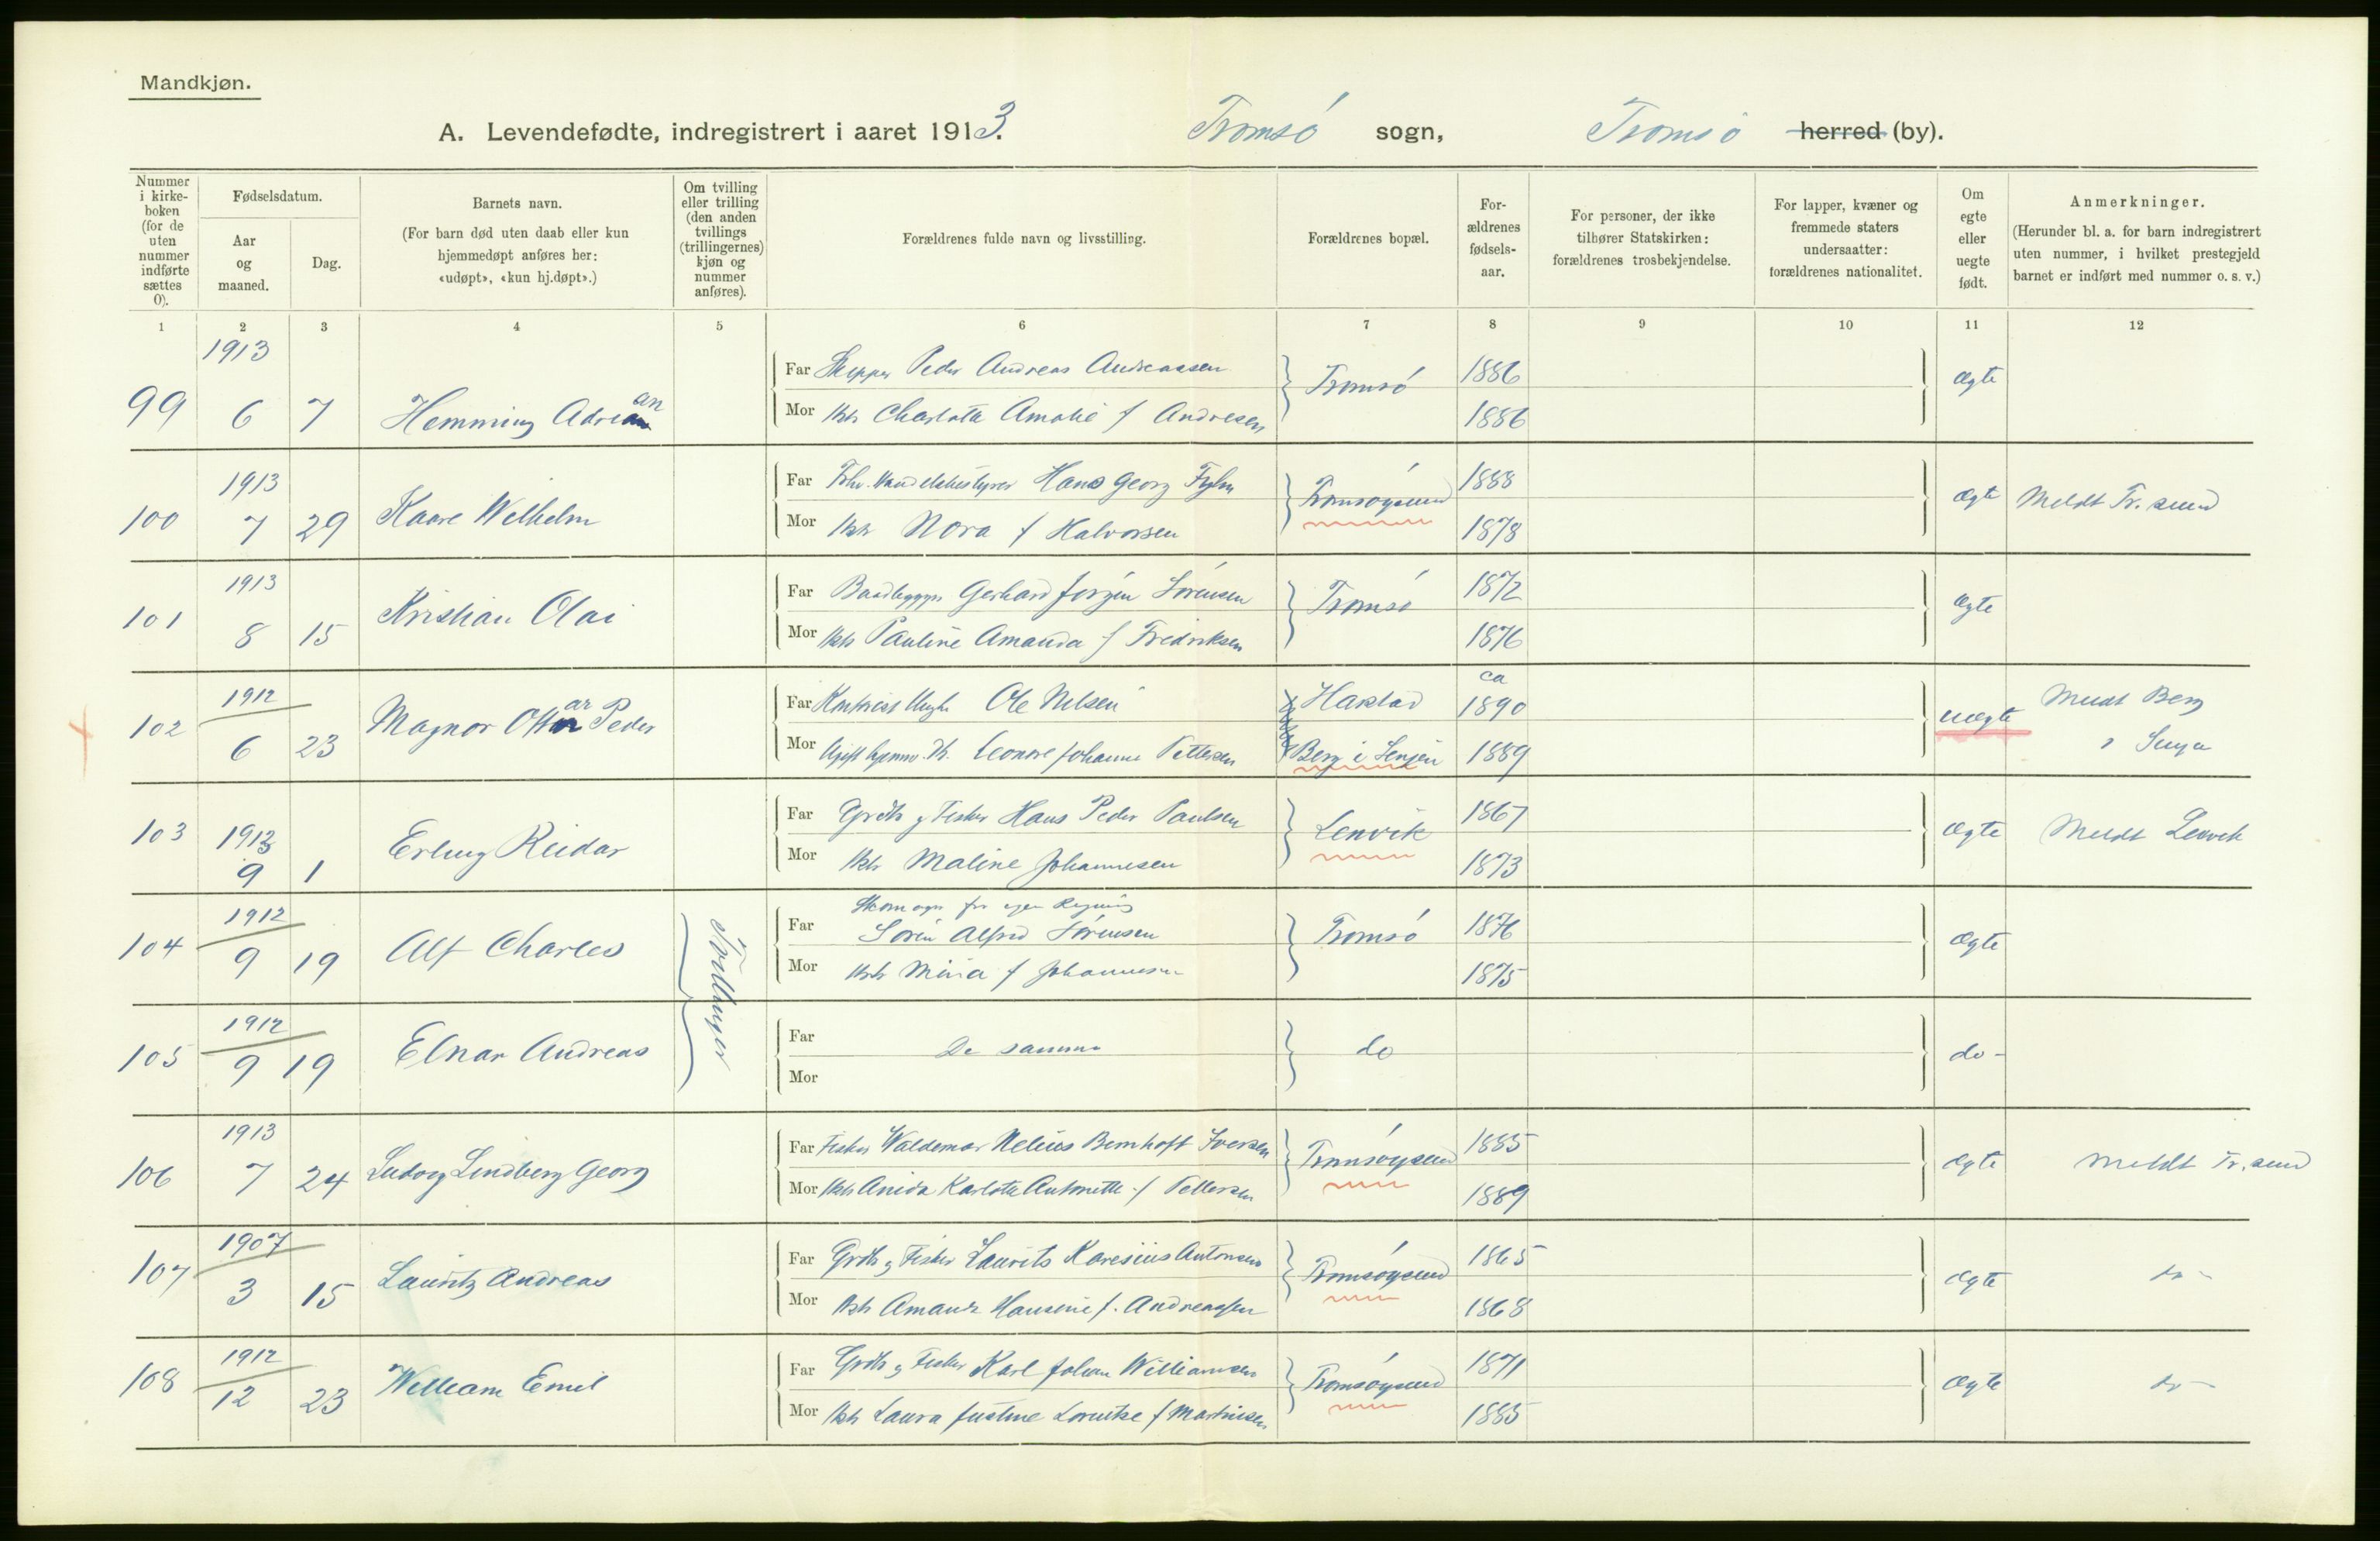 Mandkjøn.
A. Levendefødte, indregistrert i aaret 1913. Tromsø sogn, Tromsø herred (by).
Nummer i kirke-boken (for de uten nummer indførte sættes 0).
Fødselsdatum.
Aar og maaned.
Dag.
Barnets navn.
(For barn død uten daab eller kun hjemmedøpt anføres her: «udøpt», «kun hj.døpt».)
Om tvilling eller trilling (den anden tvillings (trillingernes) kjøn og nummer anføres).
Forældrenes fulde navn og livsstilling.
Forældrenes bopæl.
For-ældrenes fødsels-aar.
For personer, der ikke tilhører Statskirken: forældrenes trosbekjendelse.
For lapper, kvæner og fremmede staters undersaatter: forældrenes nationalitet.
Om egte eller uegte født.
Anmerkninger.
(Herunder bl. a. for barn indregistrert uten nummer, i hvilket prestegjeld barnet er indført med nummer o. s. v.)
1 2 3 4 5 6 7 8 9 10 11 12
99 1913 6 7 Hemming Adrian
Far Skipper Peder Andreas Andreassen Tromsø 1886 ægte
Mor Charlotte Amalie f Andresen 1886
100 1913 7 29 Kaare Wilhelm
Far Hans Georg Tromsøysund 1888 ægte Meldt Tr. sund
Mor Nora f Halvorsen 1878
101 1913 8 15 Kristian Olai
Far Baadbygger Gerhard Jørgen Sørensen Tromsø 1872 ægte
Mor Pauline Amanda f Fredriksen 1876
102 1912 6 23 Magnor Ottar Peder
Far Ole Nilsen Harstad ca 1890 uægte Meldt Berg
Mor Leonore Johanne Pettersen Berg i Senjen 1889 i Senja
103 1913 9 1 Erling Reidar
Far Grdb. g Fisker Hans Peder Paulsen Lenvik 1867 ægte Meldt Lenvik
Mor Maline Johannesen 1873
104 1912 9 19 Alf Charles Tvillinger
Skomager for egen Regning
Far Sørin Alfred Sørensen Tromsø 1876 ægte
Mor Mina f Johannesen 1875
105 1912 9 19 Einar Andreas
Far De samme do do -
Mor
106 1913 7 24 Ludvig Lindberg Georg
Far Fisker Waldemar Nelius Bernhoft Iversen Tromsøysund 1885 ægte Meldt Tr. sund
Mor Anida Karlotte Antonette f Pettersen 1889
107 1907 3 15 Lauritz Andreas
Far Grdb. g Fisker Laurits Karesius Antonsen Tromsøysund 1865 ægte do -
Mor Amanda Hansine f. Andreassen 1868
108 1912 12 23 William Emil
Far Grdb. g Fisker Karl Johan Williamsen Tromsøysund 1871 ægte do -
Mor Laura Justine Lorentse f Martinsen 1885